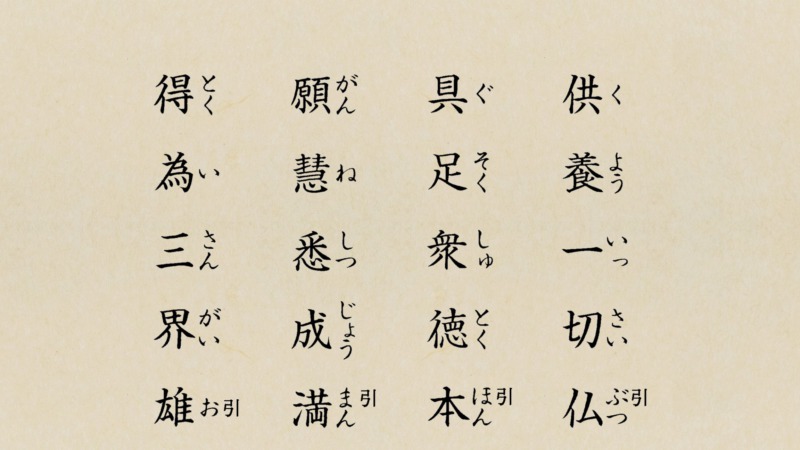 供養一切仏
くよういっさいぶつ引
具足衆徳本
ぐそくしゅとくほん引
願慧悉成満
がんねしつじょうまん引
得為三界雄
とくいさんがいお引